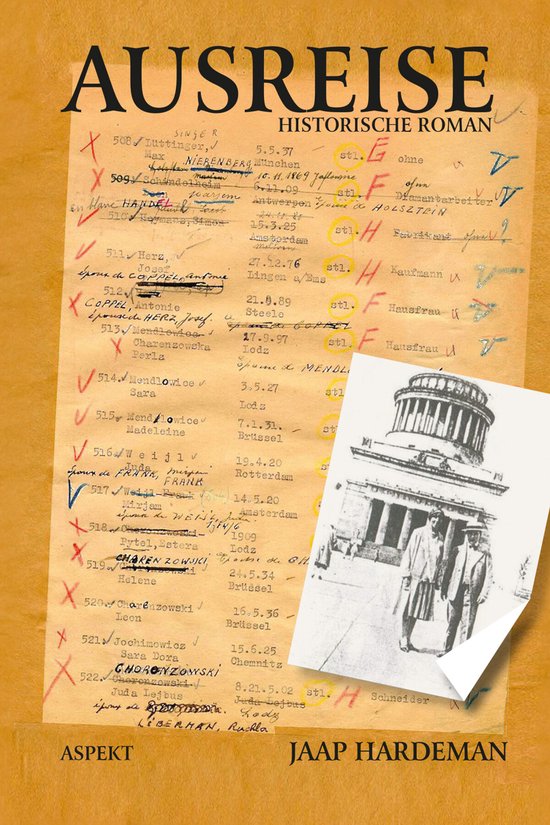 AUSREISE
HISTORISCHE ROMAN
SINGER
508 Luttinger, 5.5.37 stl. E ohne
Max NIERENBERG München
10.11.1869
509 Schindelheim 6.11.09 stl. F Diamantarbeiter
en blanc HANDEL Antwerpen Epouse de HOLSZTEIN
510 Heymans, Simon 15.3.25 stl. H Fabrikant
Amsterdam
511. Herz, 27.12.76 stl. H Kaufmann
Josef Lingen a/Ems
époux de COPPEL, Antonie
512. 21.8.89 stl. F Hausfrau
COPPEL, Antonie Steele
épouse de HERZ, Josef
513. Mendlowice 17.9.97 stl. F Hausfrau
Charenzowska Lodz
Perlz
Epouse de MENDL
514. Mendlowice 3.5.27
Sara Lodz
515. Mendlowice 7.1.31.
Madeleine Brüssel
516. Weijl 19.4.20
Juda Rotterdam
époux de FRANK, Mirjam
FRANK
517. Weijl Frank 14.5.20
Mirjam Amsterdam
épouse de WEIJL Juda
518. Chorenzowski 1909
Pytel, Estera Lodz
CHARENZOWSKI
519. 24.5.34
Helene Brüssel
520. Chorenzowski 16.5.36
Leon Brüssel
521. Jochimowicz 15.6.25
Sara Dora Chemnitz
CHORONZOWSKI
522. Chorenzowski 8.21.5.02 stl. H Schneider
Juda Lejbus Juda Lejbus
époux de Lodz
LIBERMAN, Ruchla
ASPEKT
JAAP HARDEMAN